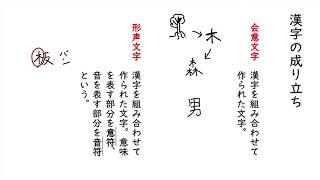 漢字の成り立ち
会意文字
漢字を組み合わせて
作られた文字。
木
森
男
形声文字
漢字を組み合わせて
作られた文字。意味
を表す部分を意符、
音を表す部分を音符
という。
板
バン